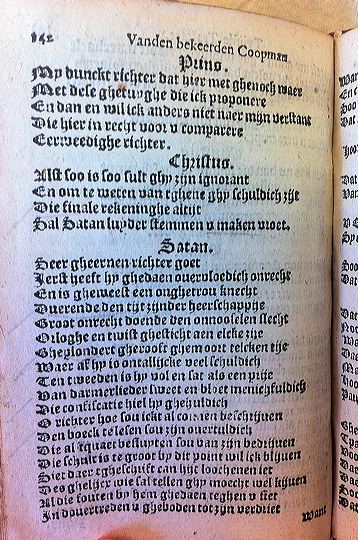 142 Vanden bekeerden Coopman
Prins.
My dunckt richter dat hier met ghenoch waer
Met dese ghetuyghe die ick proponere
En dan en wil ick anders niet naer mijn verstant
Die hier in recht voor v comparere
Eerweedighe richter.
Christus.
Alst soo is soo sult ghy zijn ignorant
En om te weten van tghene ghy schuldich zijt
Die finale rekeninghe altijt
Sal Satan luyder stemmen v maken vroet.
Satan.
Seer gheernen richter goet
Ierst heeft hy ghedaen overvloedich onrecht
En is gheweest een onghetrou knecht
Duerende den tijt zijnder heerschappije
Groot onrecht doende den onnooselen slecht
Orloghe en twist ghesticht aen elcke zije
Gheplondert gherooft ghemoort telcken tije
Waer af hy is ontallijcke veel schuldich
Ten tweeden is hy vol en sat als een prije
Van darmerlieder sweet en bloet menichfuldich
Die confiscatie hiel hy ghehuldich
O richter hoe sou ickt al connen beschrijven
Den boeck te lesen sou zijn overtuldich
Die al tquaet besluyten sou van zijn bedrijven
Die schult is te groot by dit point wil ick blijven
Siet daer tghelschrift can hijt loochenen iet
Deoghelijcx wie sal tellen ghy moecht wel kijven
Al die fouten by hem ghedaen teghen v siet
In dovertreden v gheboden tot zijn verdriet
Want